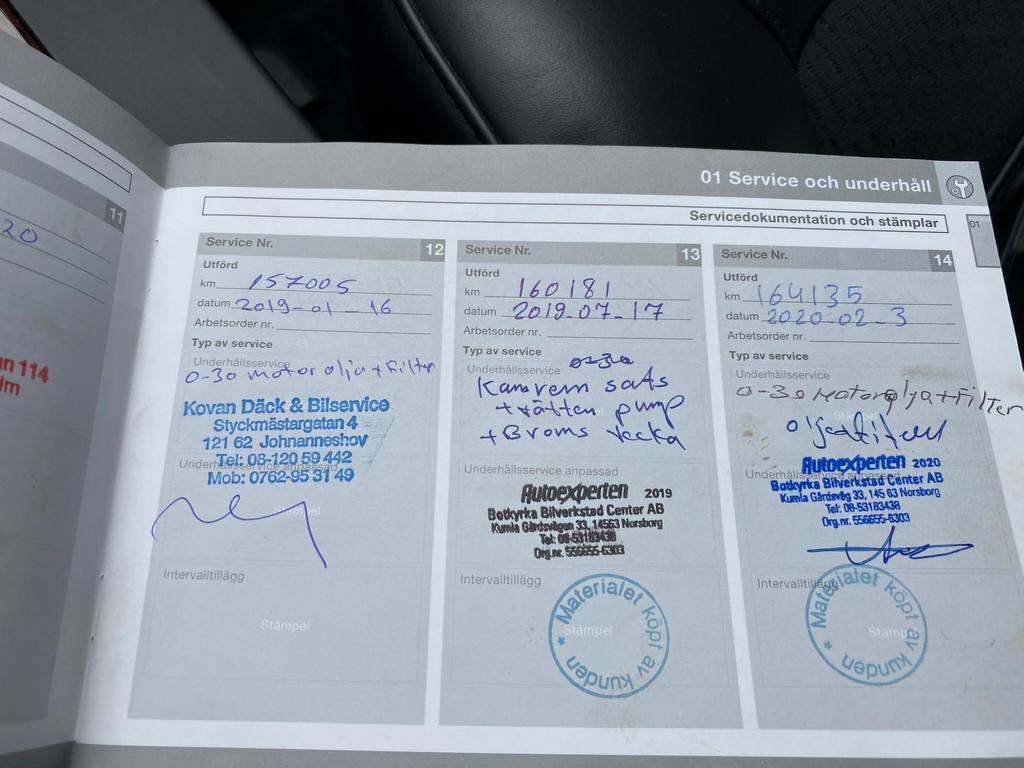 11
20
n 114
lm
01 Service och underhåll
Servicedokumentation och stämplar
01
Service Nr. 12
Utförd
km 157005
datum 2019-01-16
Arbetsorder nr.
Typ av service
Underhållsservice
0-30 motorolja+Filter
Kovan Däck & Bilservice
Styckmästargatan 4
121 62 Johanneshov
Tel: 08-120 59 442
Underhållsservice anpassad
Mob: 0762-95 31 49
Stämpel
Intervalltillägg
Stämpel
Service Nr. 13
Utförd
km 160181
datum 2019-07-17
Arbetsorder nr.
Typ av service
Underhållsservice
Kamrem sats
+vätten pump
+Broms vecka
Underhållsservice anpassad
Autoexperten 2019
Botkyrka Bilverkstad Center AB
Kumla Gårdsvägen 33, 14563 Norsborg
Tel: 08-53183438
Org.nr. 556655-6303
Intervalltillägg
Stämpel
* Materialet köpt av kunden
Service Nr. 14
Utförd
km 164135
datum 2020-02-3
Arbetsorder nr.
Typ av service
Underhållsservice
0-30 Motorolja+Filter
Stämpel
Autoexperten 2020
Underhållsservice anpassad
Botkyrka Bilverkstad Center AB
Kumla Gårdsväg 33, 145 63 Norsborg
Tel: 08-53183438
Org.nr. 556655-6303
Intervalltillägg
Stämpel
* Materialet köpt av kunden